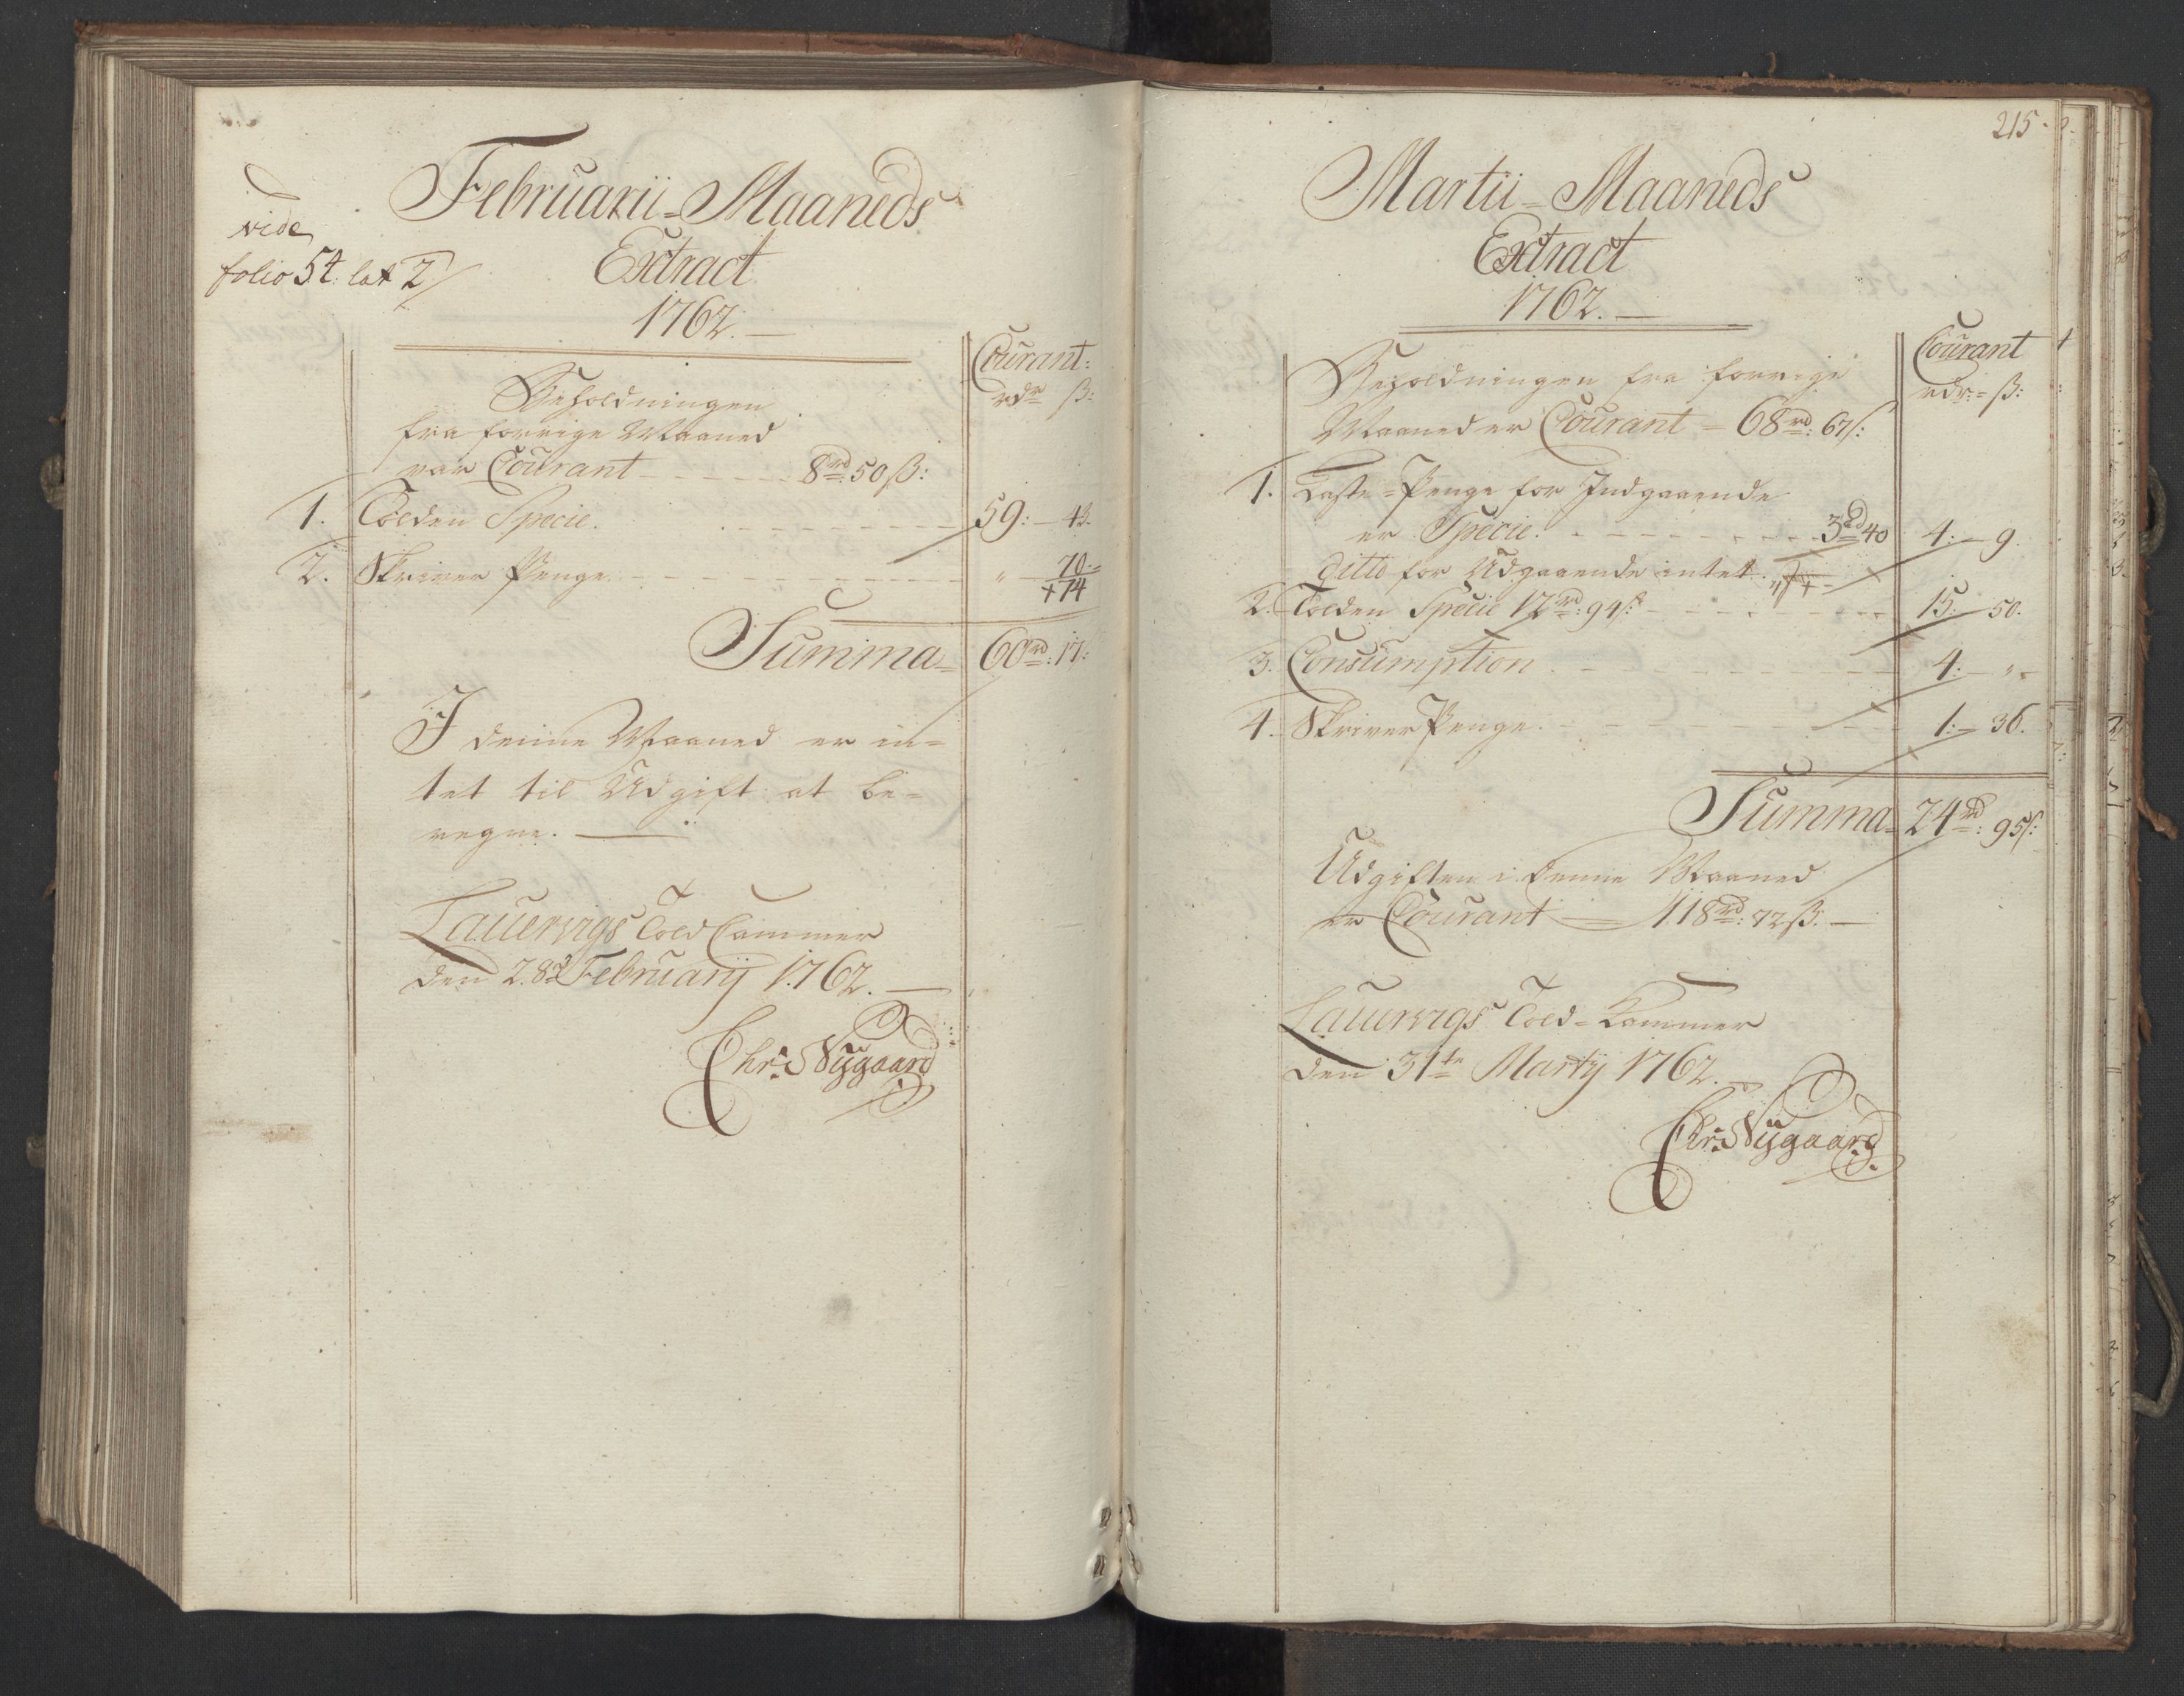 vide
folio 54. lat 2
Februarii-Maaneds
Extract
1762.
Courant:
rdr ß:
Beholdningen
fra forrige Maaned
var Courant - - - - - 8rd 50ß:
1. Tolden Specie. - - - - - - 59: - 43.
2. Skriver Penge. - - - - - - " - 70.-
+74
Summa- 60rd: 17:
I denne Maaned er in-
tet til Udgift at be-
regne.
Laurvigs Told Cammer
den 28d Februarij 1762.
Chr: Nÿgaard
215.
Martii-Maaneds
Extract
1762.
Courant
rdr:- ß:
Beholdningen fra forrige
Maaned er Courant - 68rd: 67ß:
1. Laste-Penge for Indgaaende
er Specie. - - - - - 3rd 40 4: - 9.
ditto for Udgaaende intet.
2. Tolden Specie 12rd: 94ß: - - - - 15. - 50.
3. Consumption - - - - - - 4. - "
4. Skriver Penge. - - - - - 1: - 36.
Summa- 24rd: 95ß:
Udgiften i denne Maaned
er Courant - 118rd: 72ß.
Laurvigs Told-Kammer
den 31te Martij 1762.
Chr: Nÿgaard